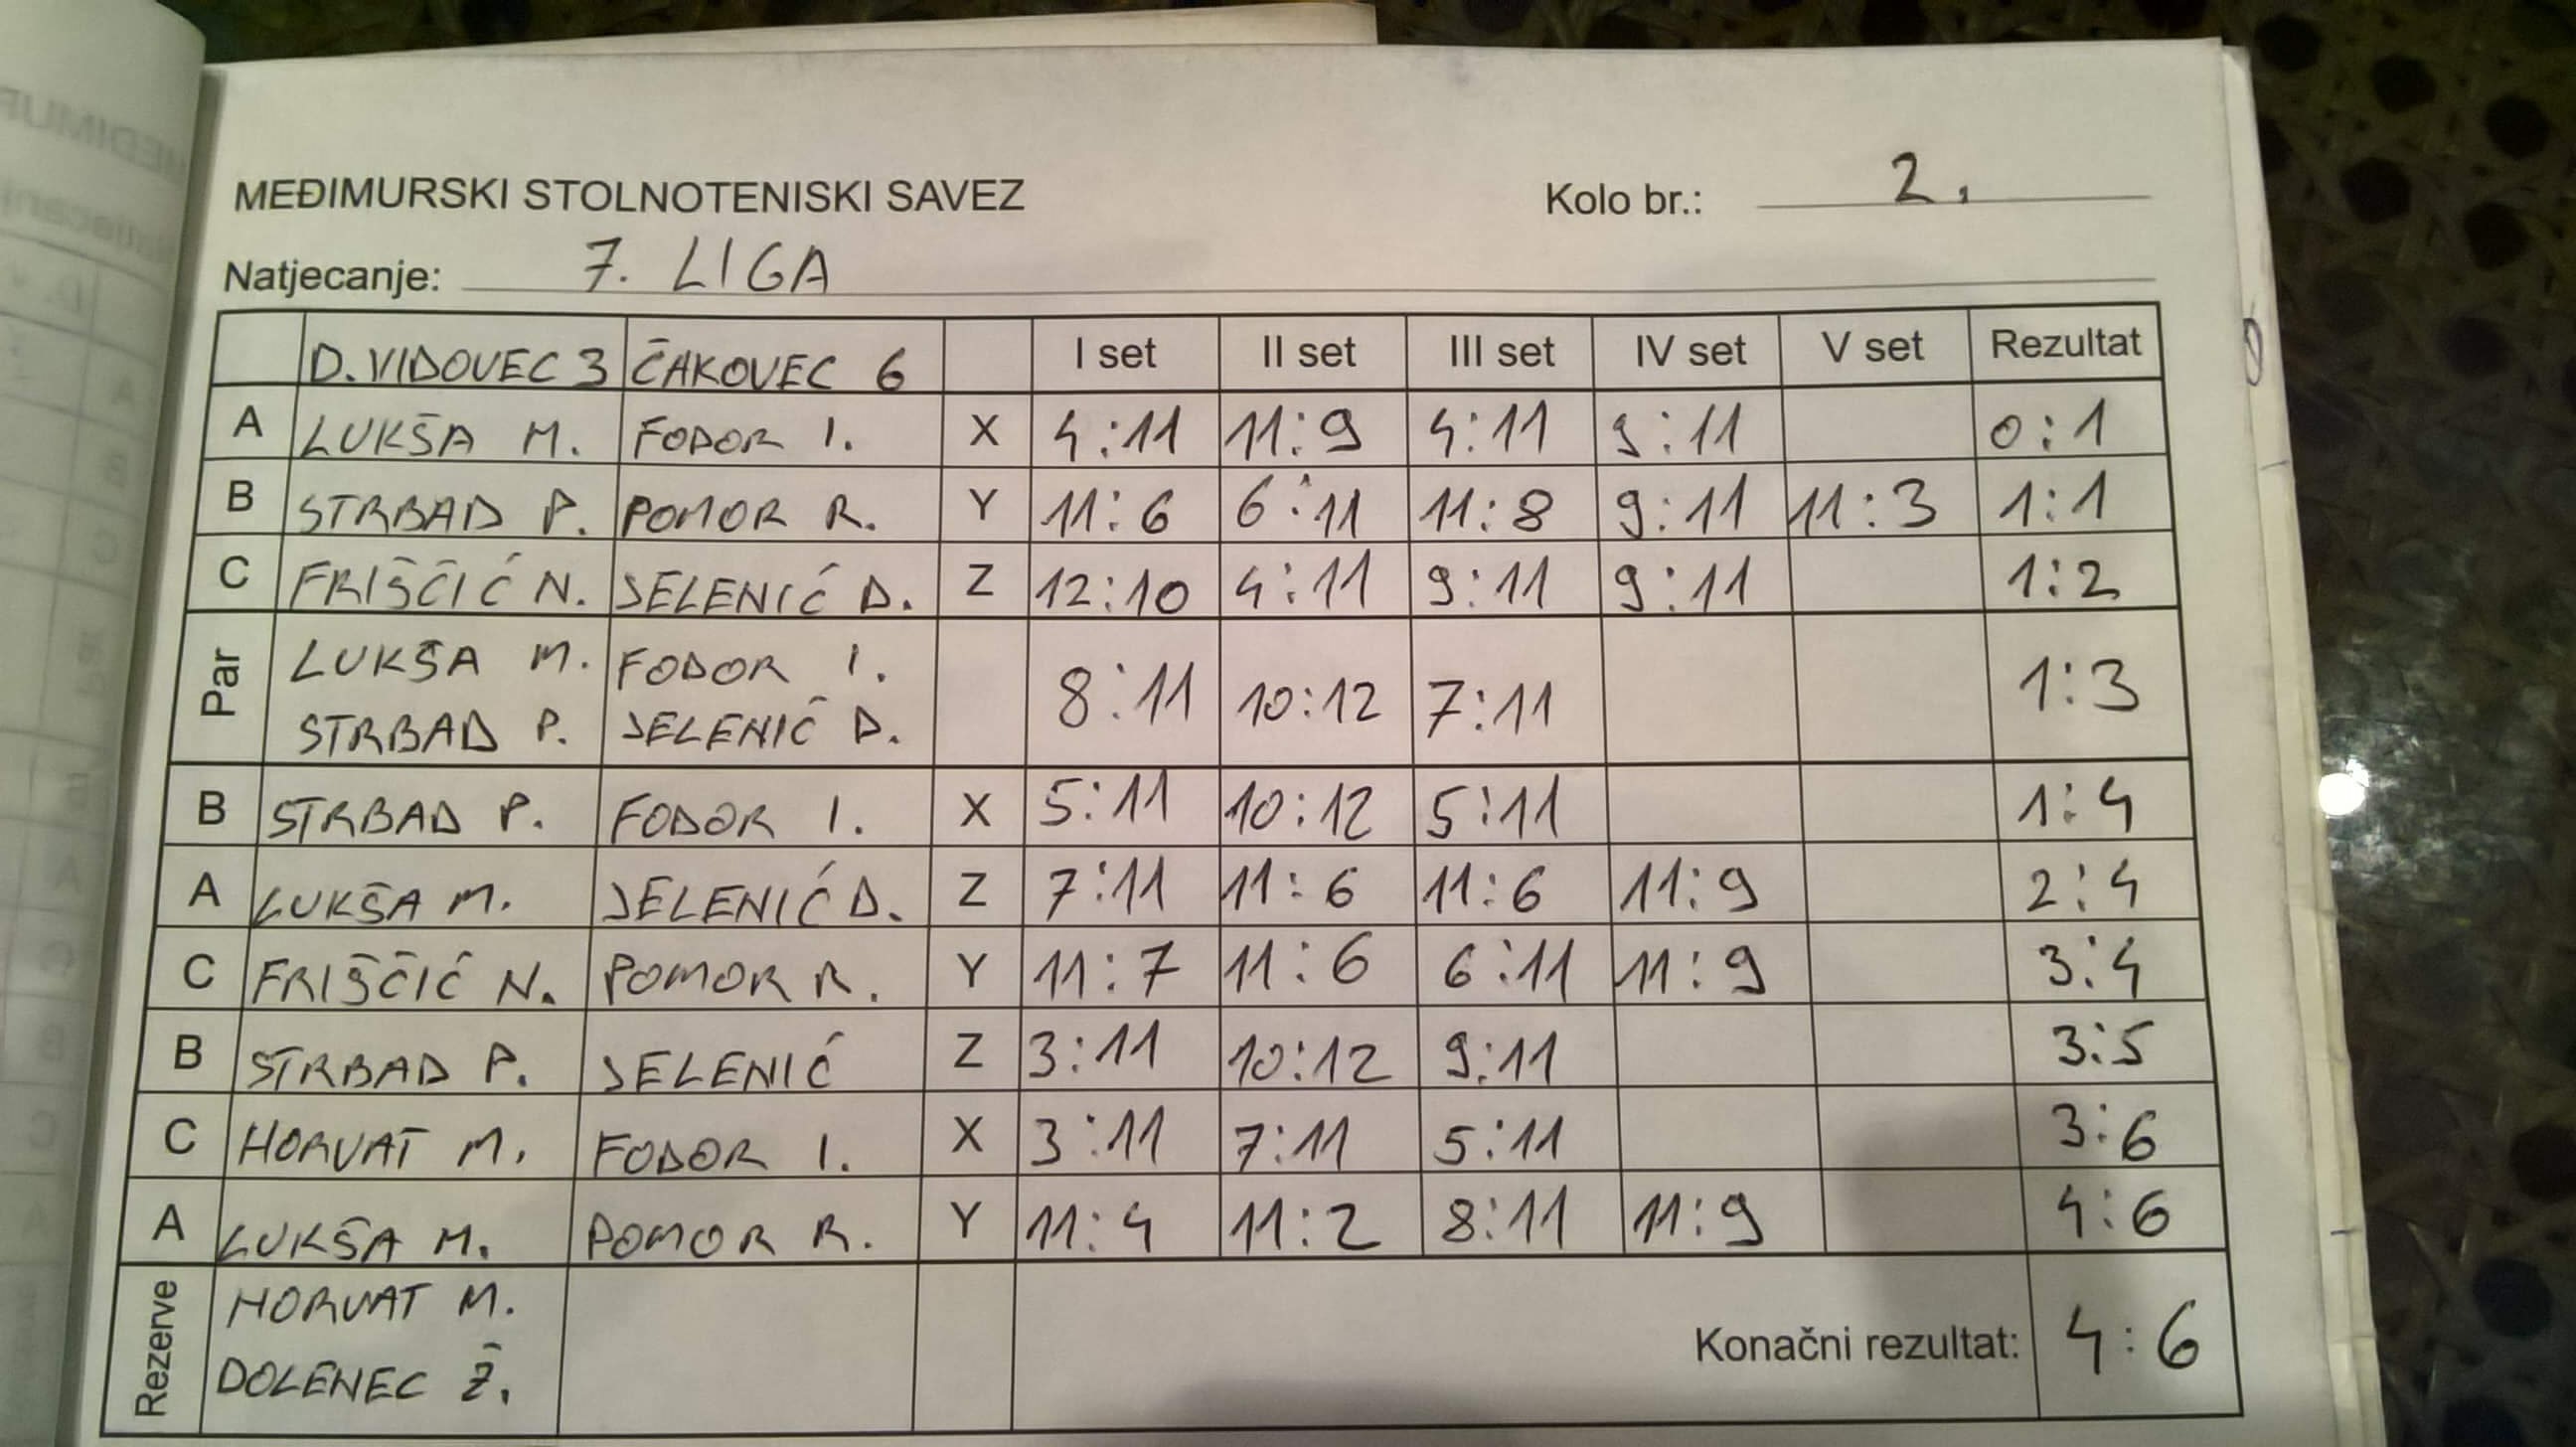 MEĐIMURSKI STOLNOTENISKI SAVEZ Kolo br.: 2.
Natjecanje: 7. LIGA
D. VIDOVEC 3 ČAKOVEC 6 I set II set III set IV set V set Rezultat
A LUKŠA M. FODOR I. X 4:11 11:9 4:11 9:11 0:1
B STRBAD P. POMOR R. Y 11:6 6:11 11:8 9:11 11:3 1:1
C FRIŠČIĆ N. JELENIĆ D. Z 12:10 4:11 9:11 9:11 1:2
Par LUKŠA M. FODOR I. 8:11 10:12 7:11 1:3
STRBAD P. JELENIĆ D.
B STRBAD P. FODOR I. X 5:11 10:12 5:11 1:4
A LUKŠA M. JELENIĆ D. Z 7:11 11:6 11:6 11:9 2:4
C FRIŠČIĆ N. POMOR R. Y 11:7 11:6 6:11 11:9 3:4
B STRBAD P. JELENIĆ Z 3:11 10:12 9:11 3:5
C HORVAT M. FODOR I. X 3:11 7:11 5:11 3:6
A LUKŠA M. POMOR R. Y 11:4 11:2 8:11 11:9 4:6
Rezerve HORVAT M.
DOLENEC Ž.
Konačni rezultat: 4:6